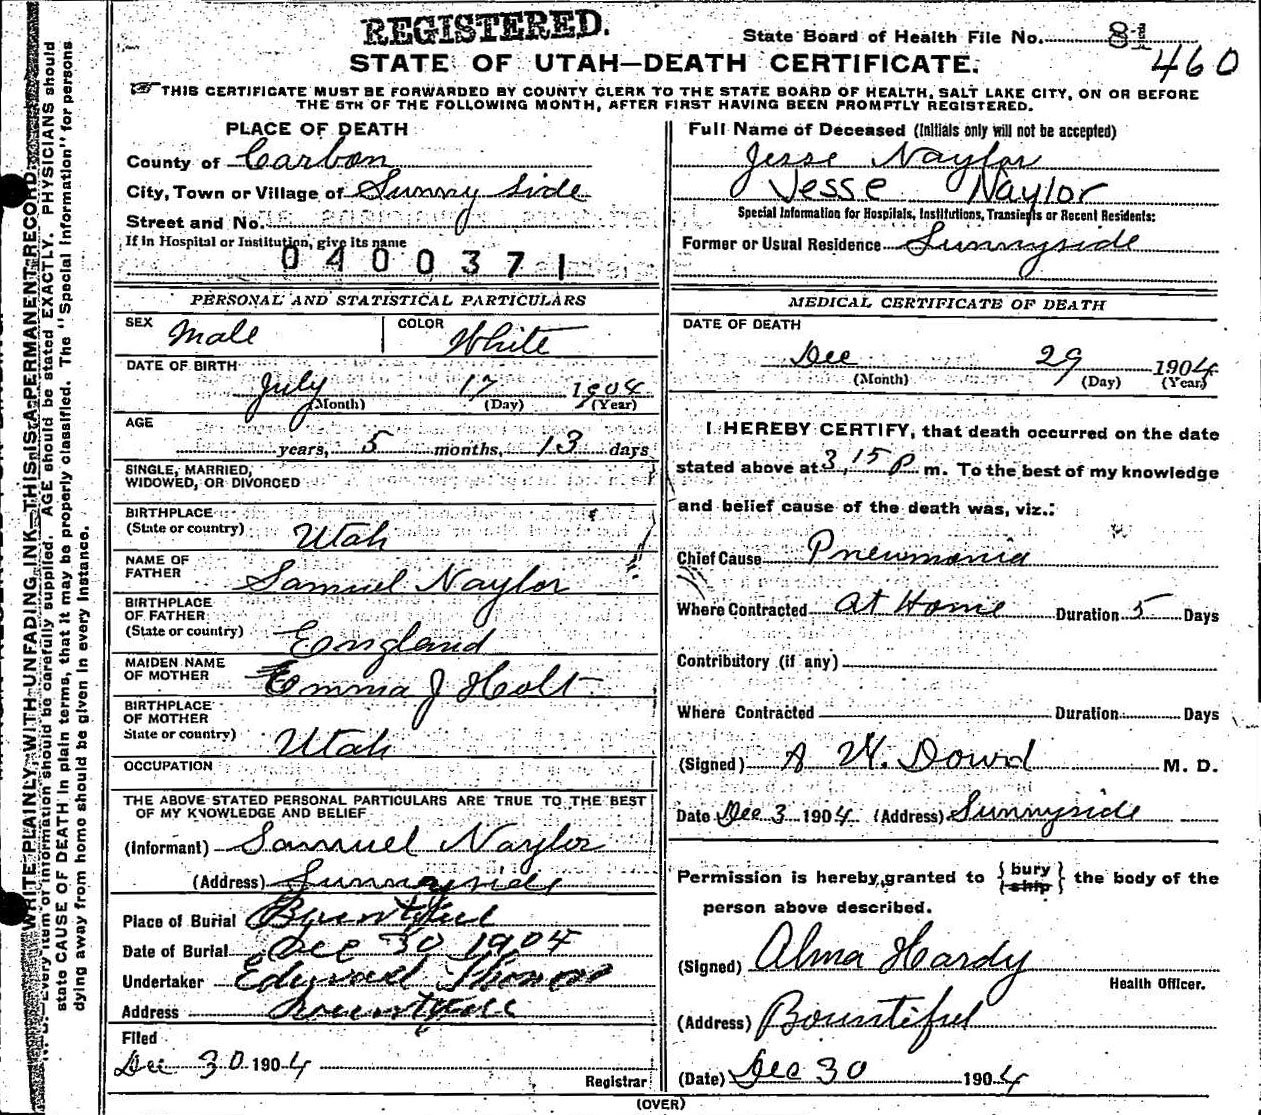 REGISTERED.
State Board of Health File No. 81
460
STATE OF UTAH—DEATH CERTIFICATE.
THIS CERTIFICATE MUST BE FORWARDED BY COUNTY CLERK TO THE STATE BOARD OF HEALTH, SALT LAKE CITY, ON OR BEFORE
THE 5TH OF THE FOLLOWING MONTH, AFTER FIRST HAVING BEEN PROMPTLY REGISTERED.
PLACE OF DEATH
County of Carbon
City, Town or Village of Sunny side
Street and No.
If in Hospital or Institution, give its name
0400371
PERSONAL AND STATISTICAL PARTICULARS
SEX Male COLOR White
DATE OF BIRTH
July 17 1904
(Month) (Day) (Year)
AGE
years, 5 months, 13 days
SINGLE, MARRIED,
WIDOWED, OR DIVORCED
BIRTHPLACE
(State or country) Utah
NAME OF
FATHER Samuel Naylor
BIRTHPLACE
OF FATHER
(State or country) England
MAIDEN NAME
OF MOTHER Emma J Holt
BIRTHPLACE
OF MOTHER
State or country) Utah
OCCUPATION
THE ABOVE STATED PERSONAL PARTICULARS ARE TRUE TO THE BEST
OF MY KNOWLEDGE AND BELIEF
(Informant) Samuel Naylor
(Address) Sunnyside
Place of Burial Bountiful
Date of Burial Dec 30 1904
Undertaker Edward Thomas
Address Bountiful
Filed
Dec 30 1904
Registrar
Full Name of Deceased (Initials only will not be accepted)
Jesse Naylor
Jesse Naylor
Special Information for Hospitals, Institutions, Transients or Recent Residents:
Former or Usual Residence Sunnyside
MEDICAL CERTIFICATE OF DEATH
DATE OF DEATH
Dec 29 1904
(Month) (Day) (Year)
I HEREBY CERTIFY, that death occurred on the date
stated above at 3,15 P m. To the best of my knowledge
and belief cause of the death was, viz.:
Chief Cause Pneumonia
Where Contracted at Home Duration 5 Days
Contributory (if any)
Where Contracted Duration Days
(Signed) A W. Dowd M. D.
Date Dec 3 1904 (Address) Sunnyside
Permission is hereby granted to {bury
ship} the body of the
person above described.
(Signed) Alma Hardy
Health Officer.
(Address) Bountiful
(Date) Dec 30 1904
(OVER)
WRITE PLAINLY, WITH UNFADING INK—THIS IS A PERMANENT RECORD.
Every item of information should be carefully supplied. AGE should be stated EXACTLY. PHYSICIANS should
state CAUSE OF DEATH in plain terms, that it may be properly classified. The "Special Information" for persons
dying away from home should be given in every instance.